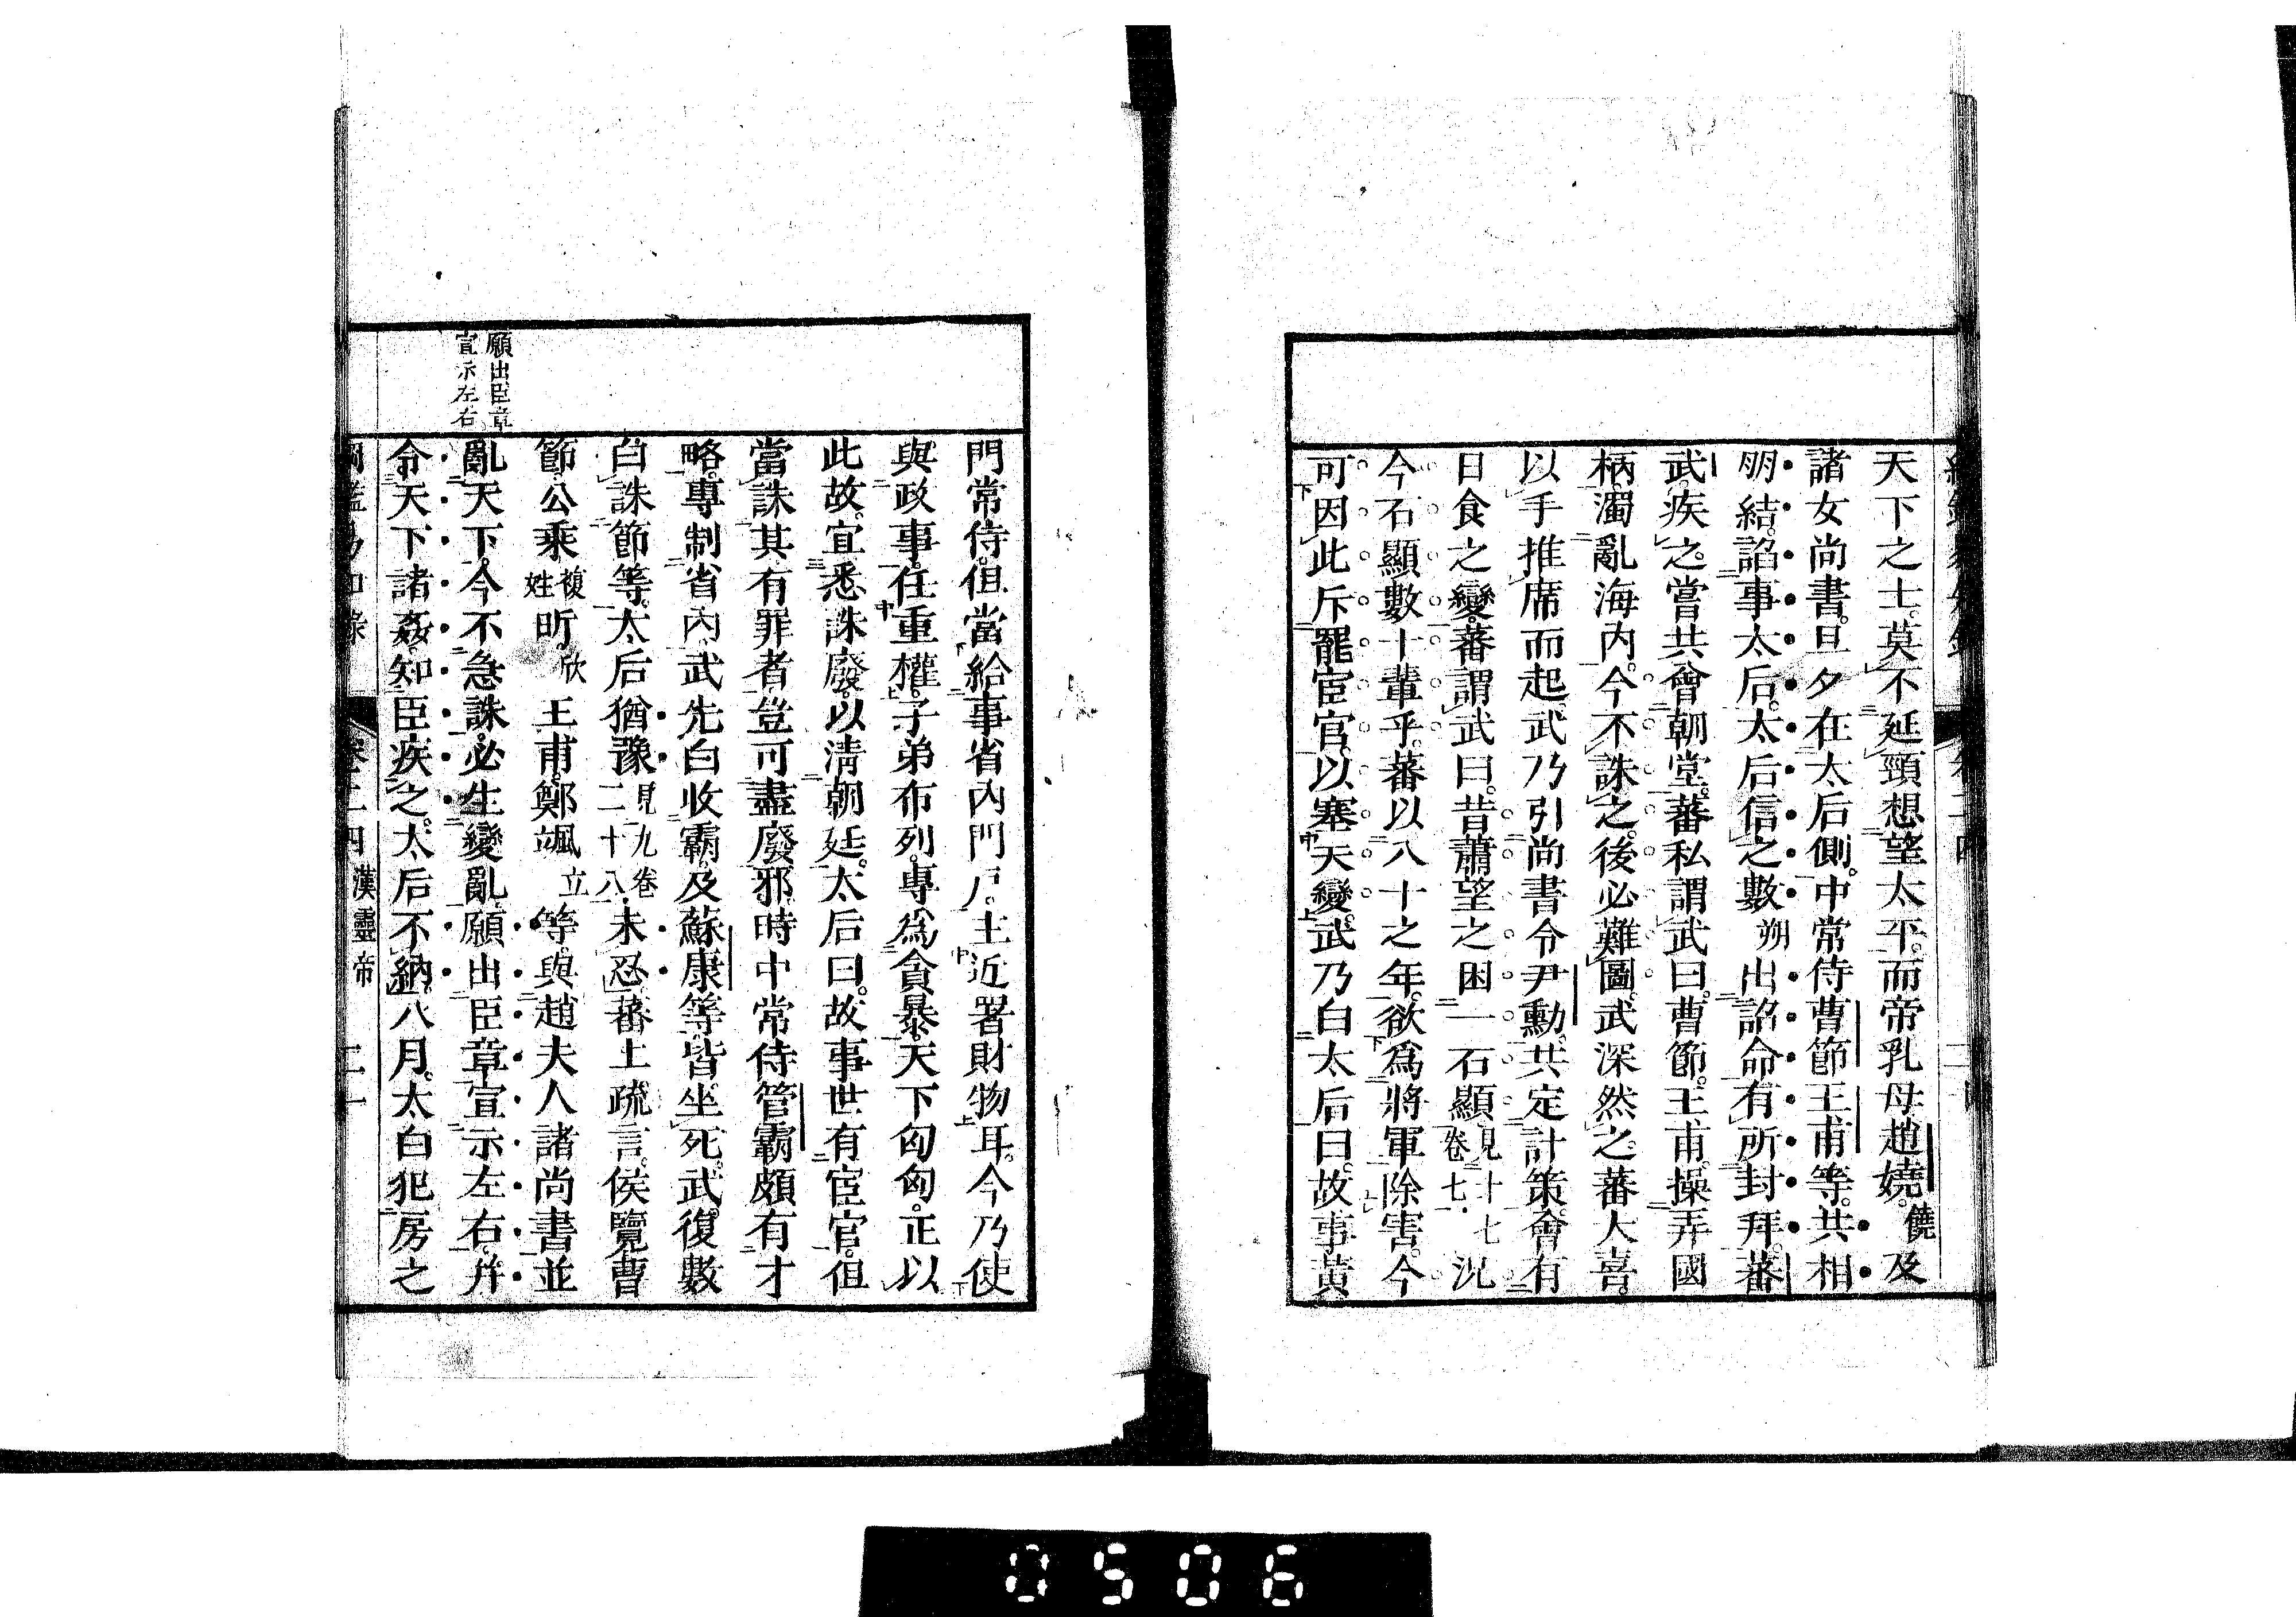 天下之士。莫不延頸想望太平。而帝乳母趙嬈。饒及
諸女尚書。旦夕在太后側。中常侍曹節王甫等。共相
朋結。諂事太后。太后信之數朔出詔命有所封拜。蕃
武疾之。嘗共會朝堂。蕃私謂武曰。曹節。王甫。操弄國
柄。濁亂海內。今不誅之。後必難圖。武深然之。蕃大喜。
以手推席而起。武乃引尚書令尹勳。共定計策。會有
日食之變。蕃謂武曰。昔蕭望之困一石顯見十七卷七況
今石顯數十輩乎。蕃以八十之年。欲爲將軍除害。今
可因此斥罷宦官。以塞天變。武乃白太后曰。故事黃
門常侍。但當給事省內門戶。主近署財物耳。今乃使
與政事。任重權。子弟布列。專爲貪暴。天下匈匈。正以
此故。宜悉誅廢。以淸朝廷。太后曰。故事世有宦官。但
當誅其有罪者。豈可盡廢邪。時中常侍管霸頗有才
略。專制省內。武先白收霸。及蘇康等。皆坐死。武。復數
白誅節等。太后猶豫見九卷二十八未忍。蕃上疏言。侯覽曹
節公乘複姓昕欣王甫。鄭颯立等。與趙夫人諸尚書並
亂天下。今不急誅。必生變亂。願出臣章宣示左右。幷
令天下諸姦。知臣疾之。太后不納。八月。太白犯房之
願出臣章
宣示左右
卷二十四 漢靈帝 二一
0506